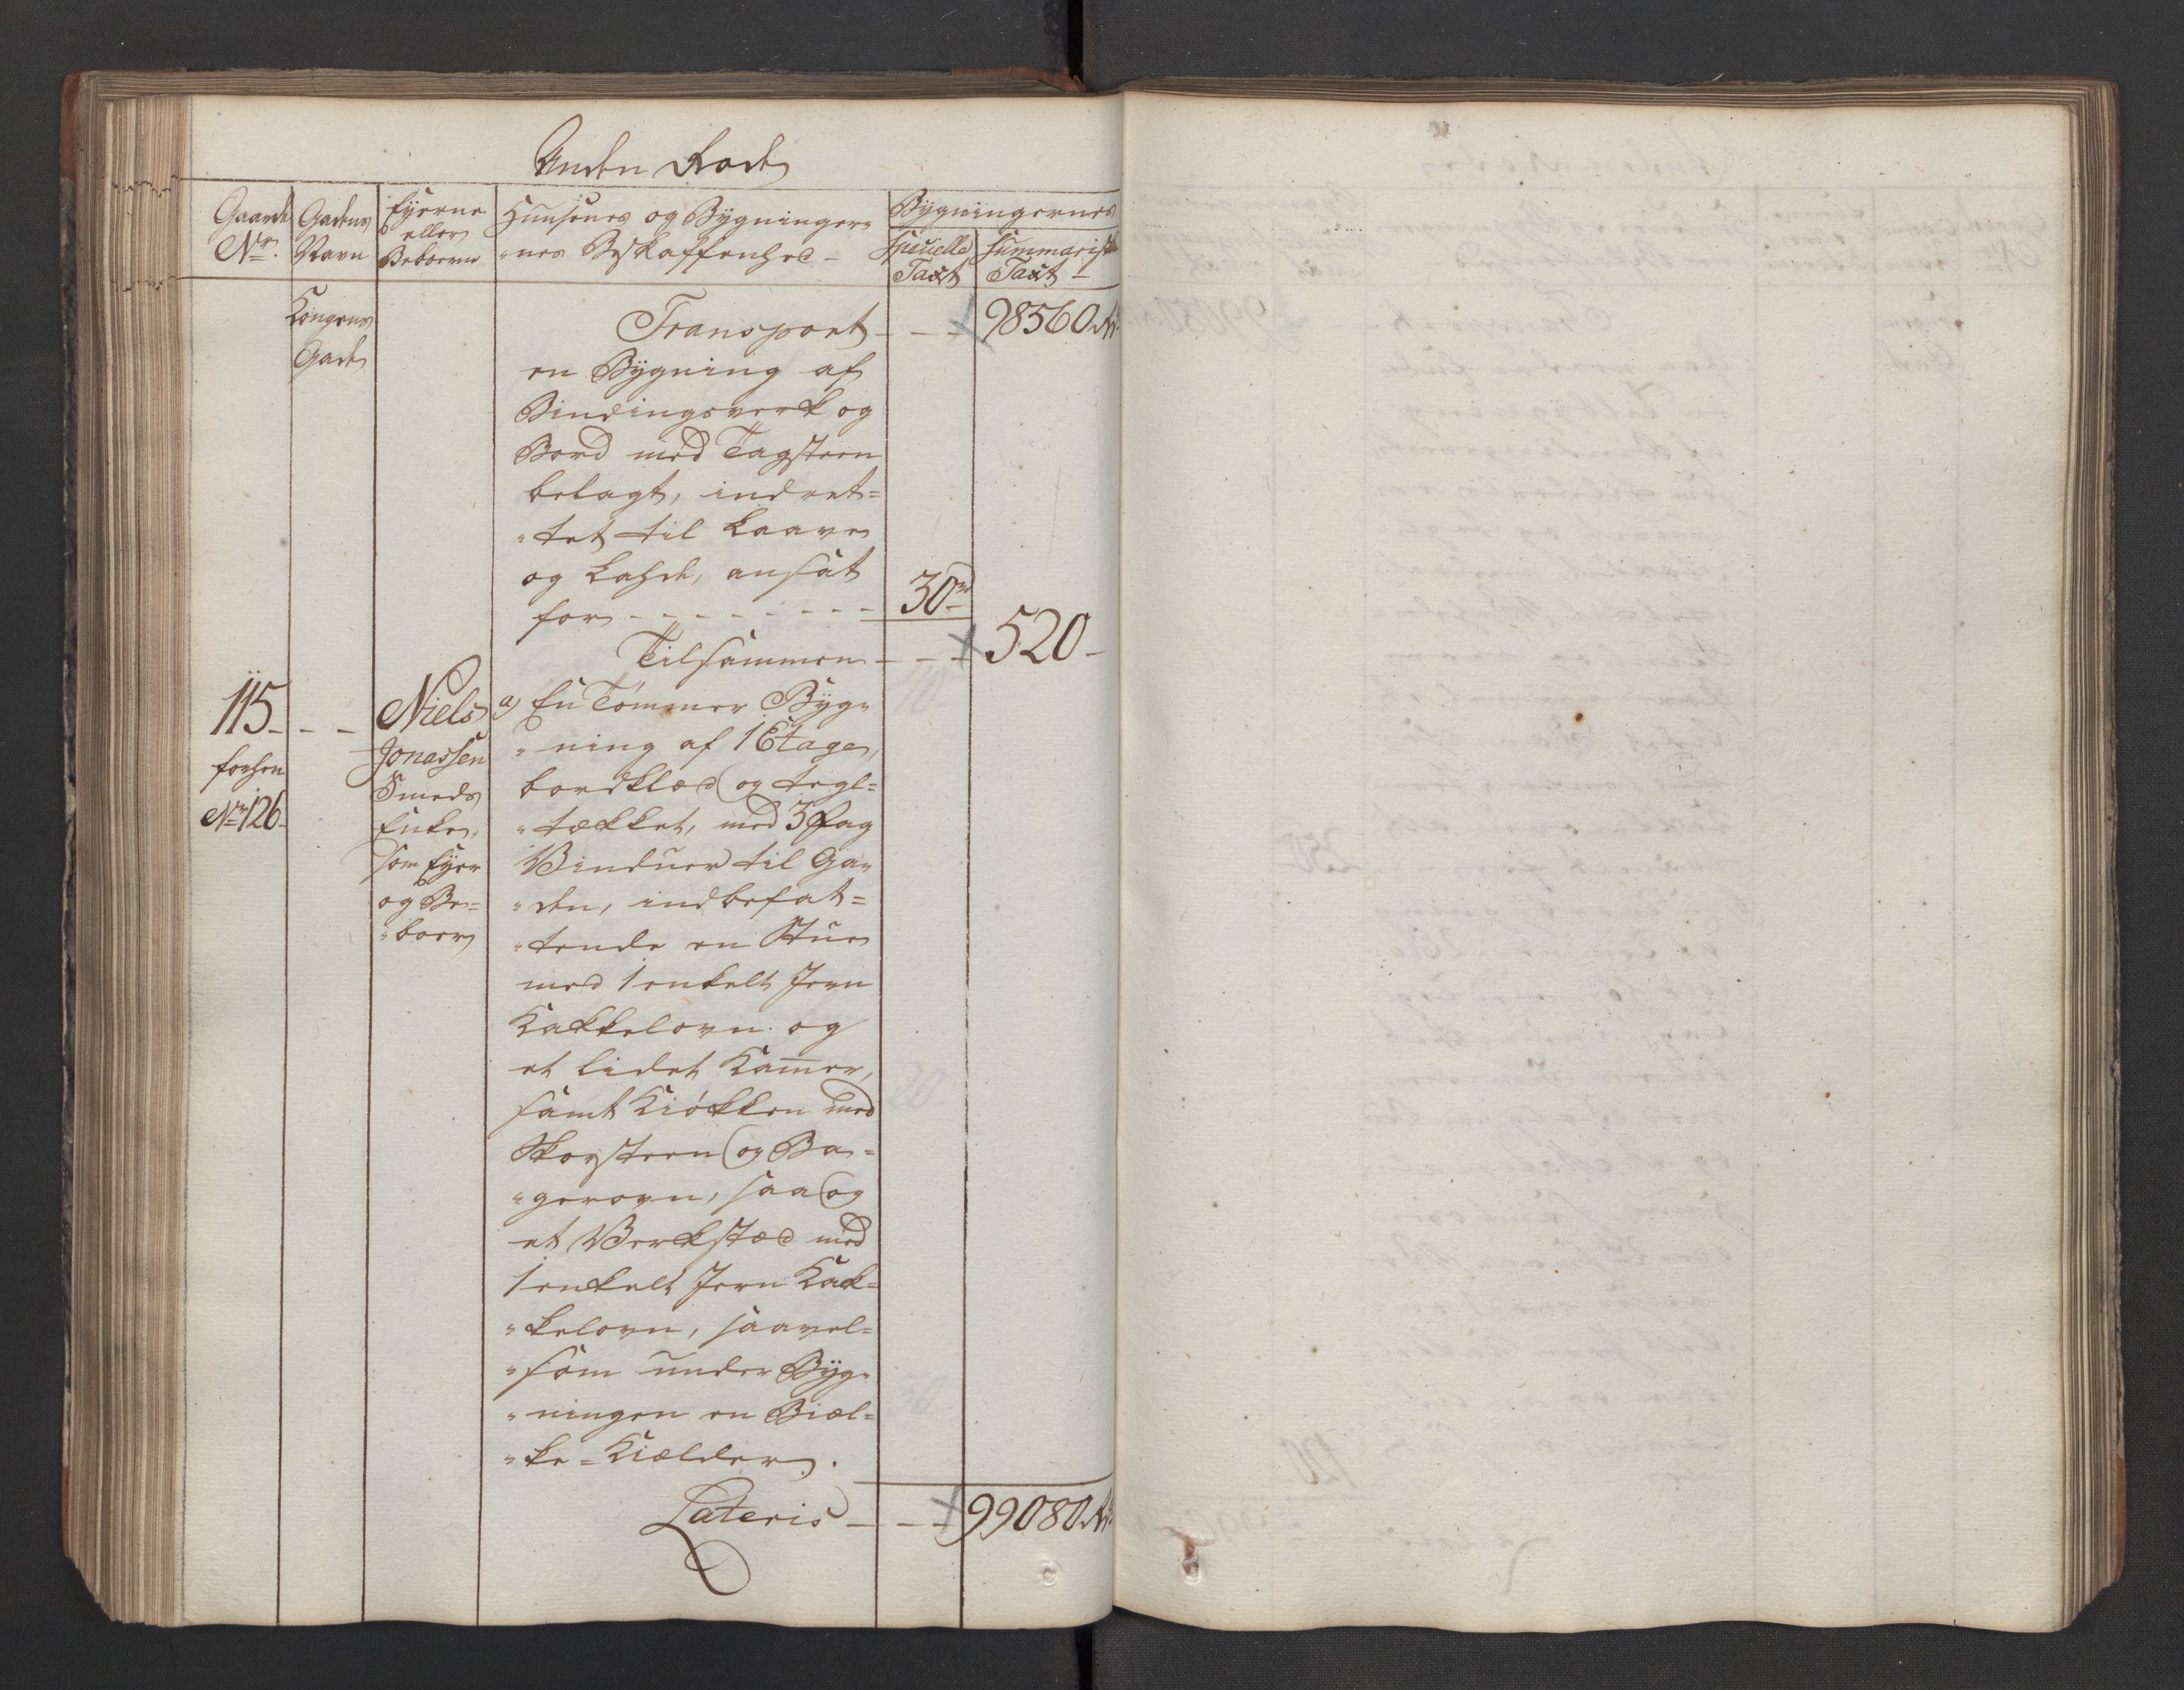 Anden Rode
Gaarde Nr.
Gadens Navn
Eyerne eller Beboerne
Huusenes og Bygninger-
-nes Beskaffenhed -
Bygningernes
Specielle Taxt
Summariske Taxt -
Kongens
Gade
Transport - - - 98560 Rdr
en Bygning af
Bindingsverk og
Bord med Tagsteen
belagt, indret=
"tet til Laave
og Lahde, ansat
for - - - - - - - - 30 -
Tilsammen - - - 520 -
115 - - -
forhen
Nr 126 -
Niels
Jonassen
Smeds
Enke,
som Eyer
og Be=
"boer
a) En Tømmer Byg-
"ning af 1 Etage,
bordklæd og tegl=
"tækket, med 3 Fag
Vinduer til Ga-
"den, indbefat=
"tende en Stue
med 1 enkelt Jern
Kakkelovn og
et lidet Kam̄er,
samt Kiøkken med
Skorsteen og Ba=
"gerovn, saa og
et Verkstæd med
1 enkelt Jern Kak=
"kelovn, saavel=
"som under Byg-
"ningen en Biel=
"ke=Kielder.
Lateris - - - 99080 Rdr